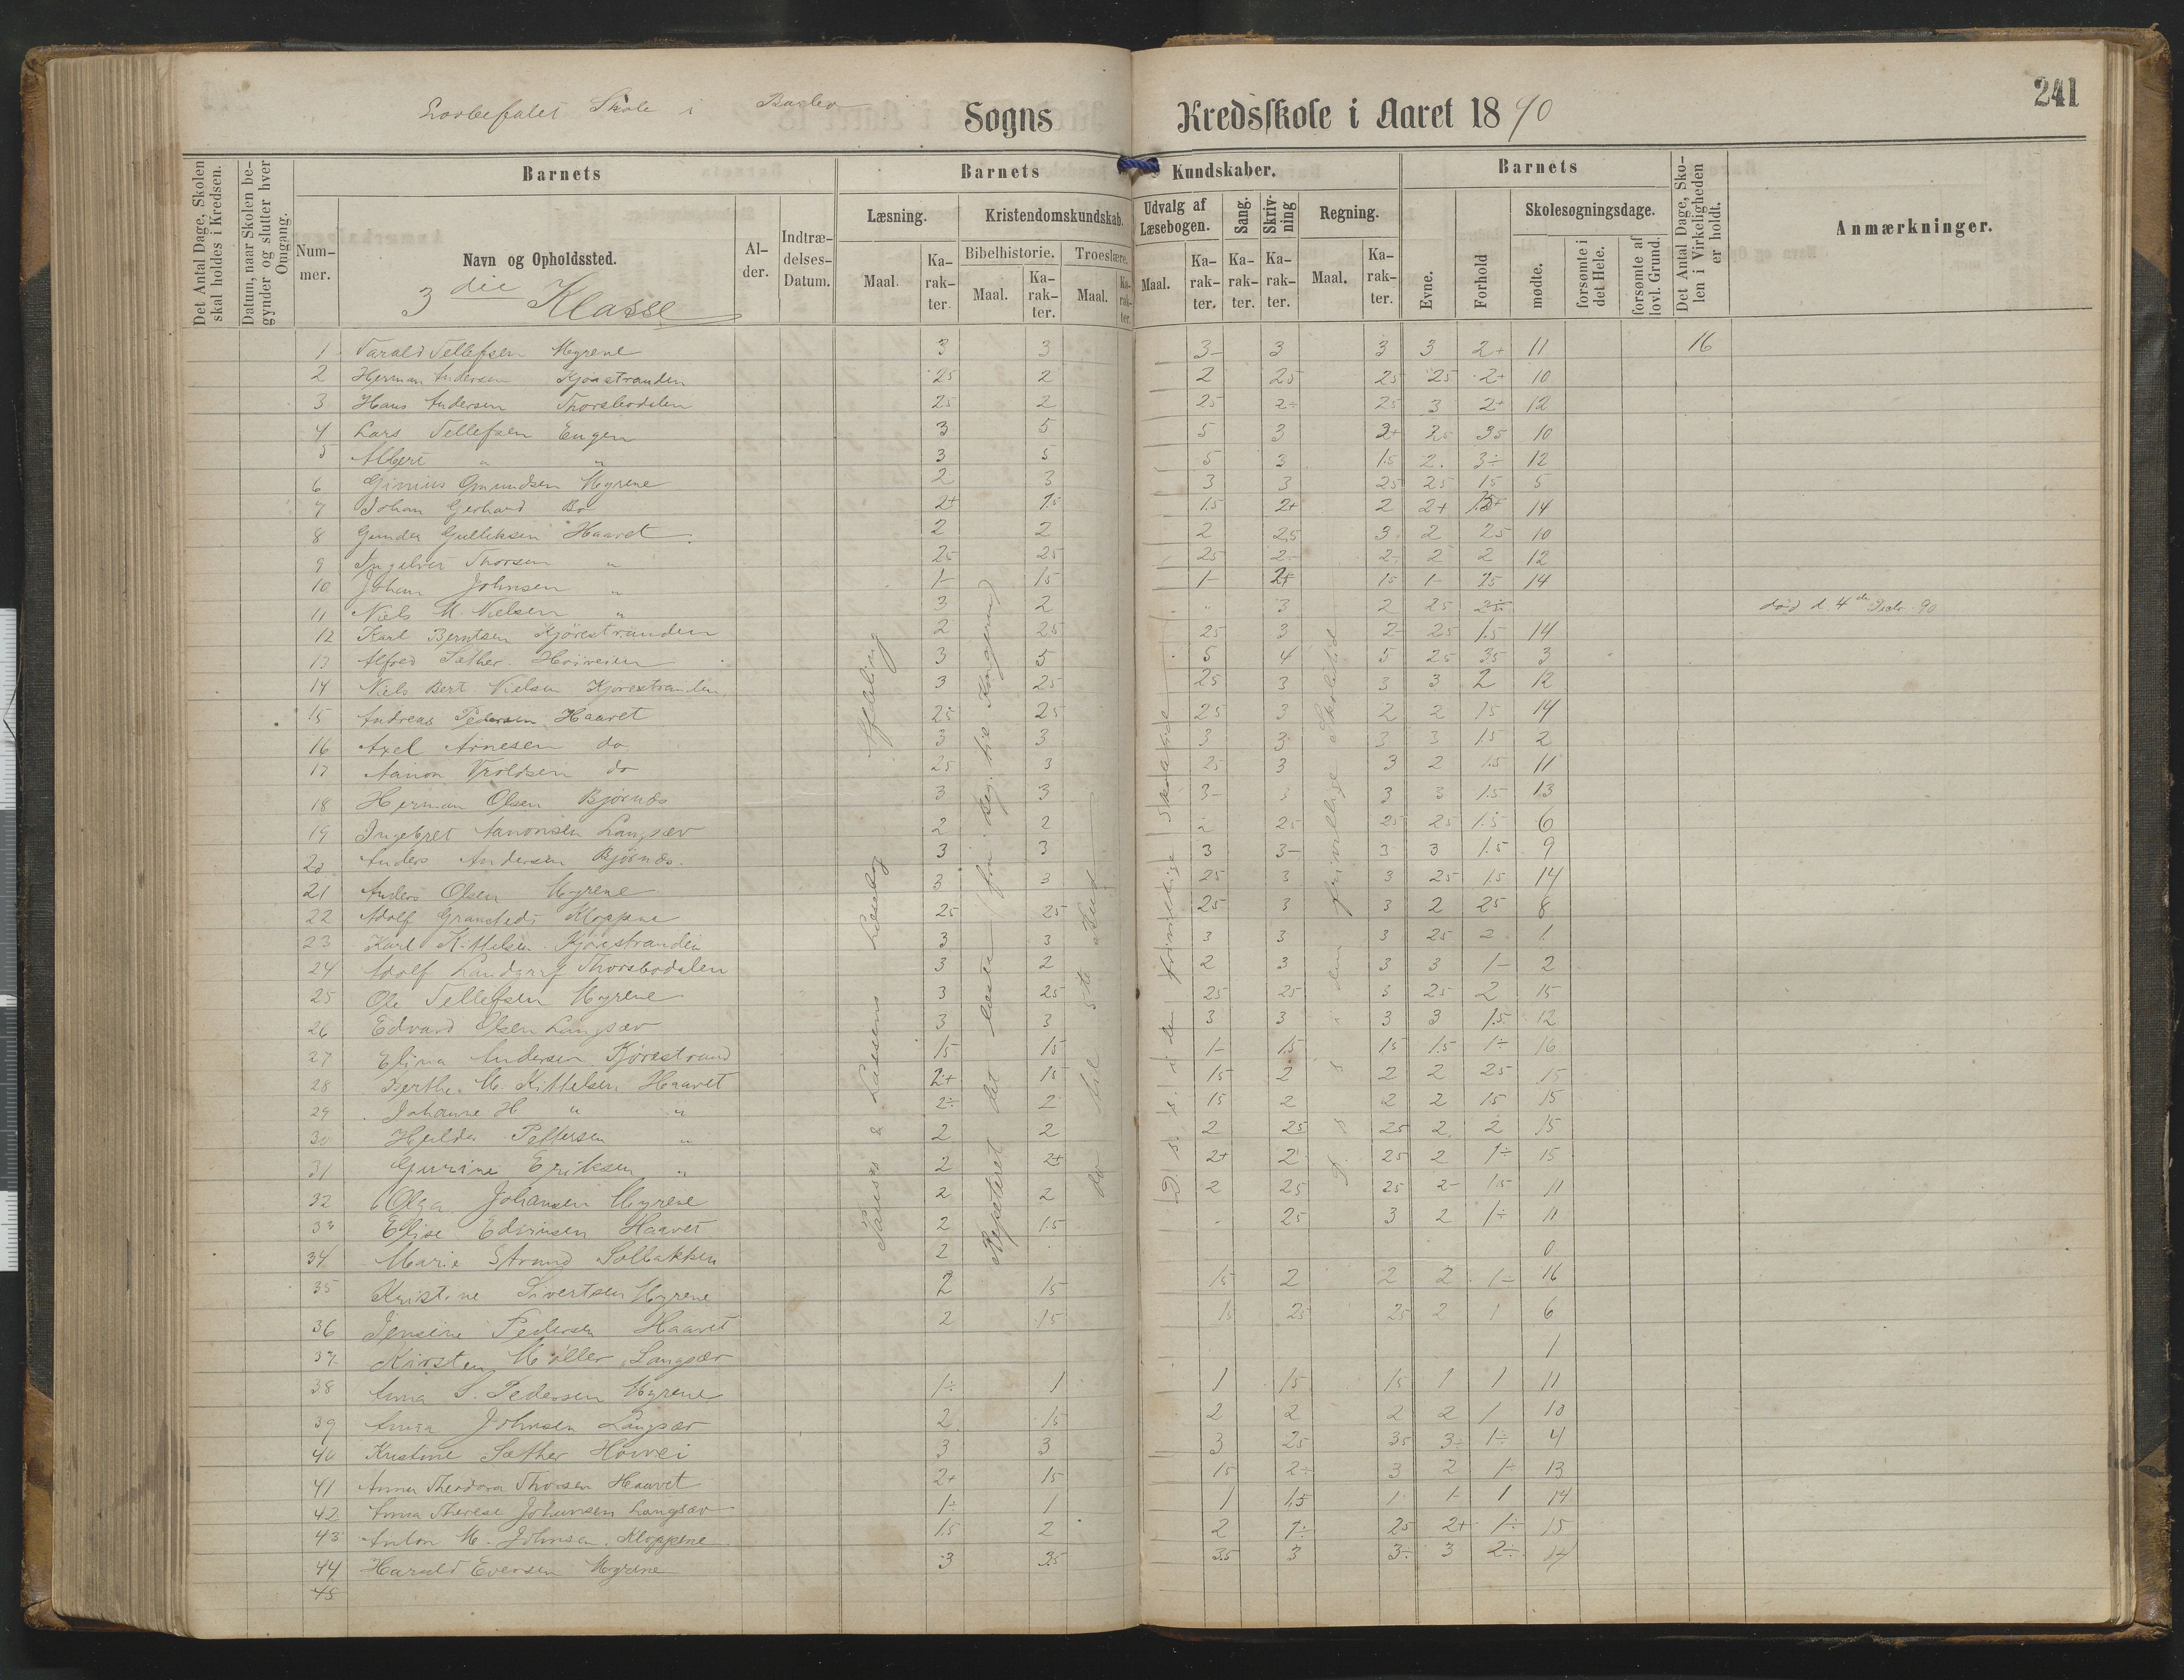 241
Skole i
Sogns Kredsskole i Aaret 1890
Det Antal Dage, Skolen skal holdes i Kredsen.
Datum, naar Skolen begynder og slutter hver Omgang.
Barnets
Nummer.
Navn og Opholdssted.
3 die Klasse
Alder.
Indtrædelses-Datum.
Barnets Kundskaber.
Læsning.
Maal. Karakter.
Kristendomskundskab.
Bibelhistorie. Troeslære.
Maal. Karakter. Maal. Karakter.
Udvalg af Læsebogen.
Maal. Karakter.
Sang. Karakter.
Skrivning Karakter.
Regning.
Maal. Karakter.
Barnets
Evne.
Forhold
Skolesøgningsdage.
mødte.
forsømte i det Hele.
forsømte af lovl. Grund.
Det Antal Dage, Skolen i Virkeligheden er holdt.
Anmærkninger.
1 Tarald Tellefsen Myrene 3 3 3- 3 3 3 2+ 11 16
2 Herman Andersen Kjørestranden 25 2 2 25 25 25 2+ 10
3 Hans Andersen Thorsbodalen 25 2 25 2÷ 25 3 2+ 12
4 Lars Tellefsen Engen 3 5 5 3 3+ 35 10
5 Albert " " 3 5 5 3 1.5 2. 3÷ 12
6 Gmundsen Myrene 2 3 3 3 25 25 15 5
7 Johan Gerhard Bo 2+ 1.5 1.5 2+ 2 2+ 14
8 Gunder Gulliksen Haavet 2 2 2 2,5 3 2 25 10
9 Thorsen " 25 25 25 2- 2 2 2 12
10 Johan Johnsen " 1- 15 1- 2+ 15 1- 14
11 Niels M. Nielsen " 3 2 " 3 2 25 død d 4de 90
12 Karl Berntsen Kjørestranden 2 25 25 3 2- 25 1.5 14
13 Alfred Sæther. Hoiveien 3 5 5 4 5 25 35 3
14 Niels Bert. Nielsen Kjørestranden 3 25 25 3 3 3 2 12
15 Andreas Pedersen Haavet 25 25 25 3 2 2 15 14
16 Axel Arnesen do 3 3 3 3 3 3 15 2
17 Aanon do 25 3 25 3 3 2 1.5 11
18 Herman Olsen Bjørnæs 3 3 3- 3 3 3 1.5 13
19 Ingebret Aanonsen Langsæv 2 2 2 25 25 25 1.5 6
20 Anders Andersen Bjørnæs. 3 3 3 3- 3 3 1.5 9
21 Anders Olsen Myrene 3 3 25 3 3 25 1.5 14
22 Adolf Kloppene 25 25 25 3 3 2 25 8
23 Karl Kittelsen Kjørestranden 3 3 3 3 3 25 2 1
24 Adolf Thorsbodalen 3 2 2 3 3 3 1- 2
25 Ole Tellefsen Myrene 3 25 25 25 3 25 2 15
26 Edvard Olsen Langsæv 3 3 3 3 3 3 1.5 12
27 Elina Andersen Kjørestrand 15 15 1- 1.5 15 1.5 1÷ 16
28 Berthe M. Kittelsen Haavet 2+ 15 15 2 2 2 25 15
29 Johanne H " " 2÷ 2 15 2 2 2 15 15
30 Hulda Pettersen " 2 2 2 25 25 2 2 15
31 Gurine Eriksen " 2 2+ 2 25 2 1÷ 15
32 Olga Johansen Myrene 2 2 2 25 25 2- 15 11
33 Elise Haavet 2 1.5 - 25 3 2 1÷ 11
34 Marie Strand Solbakken 2 0
35 Kristine Sivertsen Myrene 2 15 15 2 2 2 1- 16
36 Jensine Pedersen Haavet 2 15 15 25 25 2 1 6
37 Kirsten Møller Langsæv 1
38 Anna S. Pedersen Myrene 1÷ 1 1 15 15 1 1 11
39 Anna Johnsen Langsæv 2 15 2 2 2 2 1 10
40 Kristine Sæther 3 3 3 25 35 3÷ 1÷ 4
41 Anna Theodora Thorsen Haavet 2+ 15 15 2÷ 3 2 1÷ 13
42 Anna Therese Johansen Langsæv 1÷ 1 1 1,5 1 1- 1 14
43 Anton M. Johnsen. Kloppene 1.5 2 2 1÷ 25 2+ 1÷ 15
44 Harald Evensen Myrene 3 35 35 3 3÷ 3 2÷ 14
45
Læsebog
Repeteret det læste
do til 5te Bud
D. s. s. i den frivillige Skoletid
D s s i den frivillige Skoletid